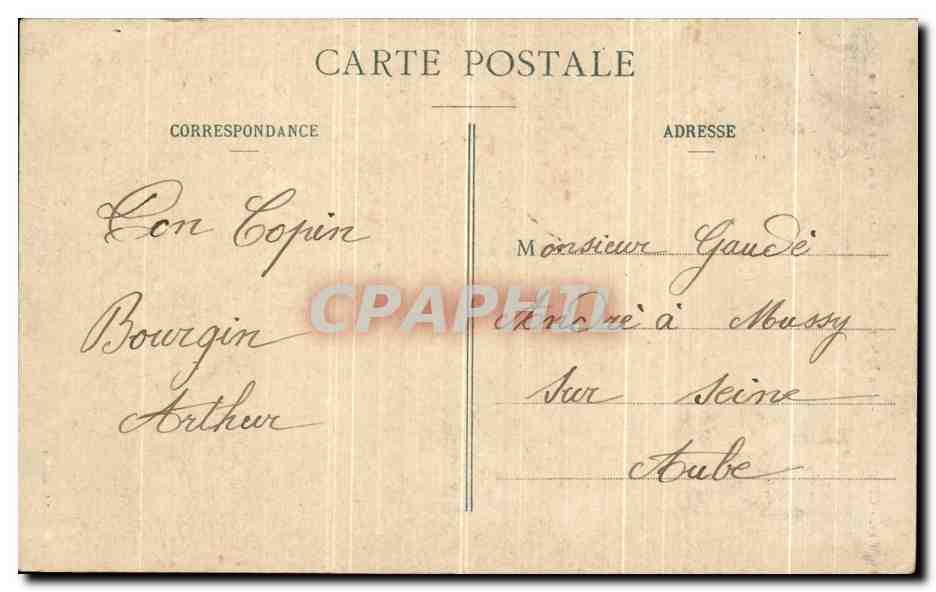 CARTE POSTALE
CORRESPONDANCE
Ton Copin
Bourgin
Arthur
ADRESSE
Monsieur Gaudé
André à Mussy
sur Seine
Aube
CPAPHIL